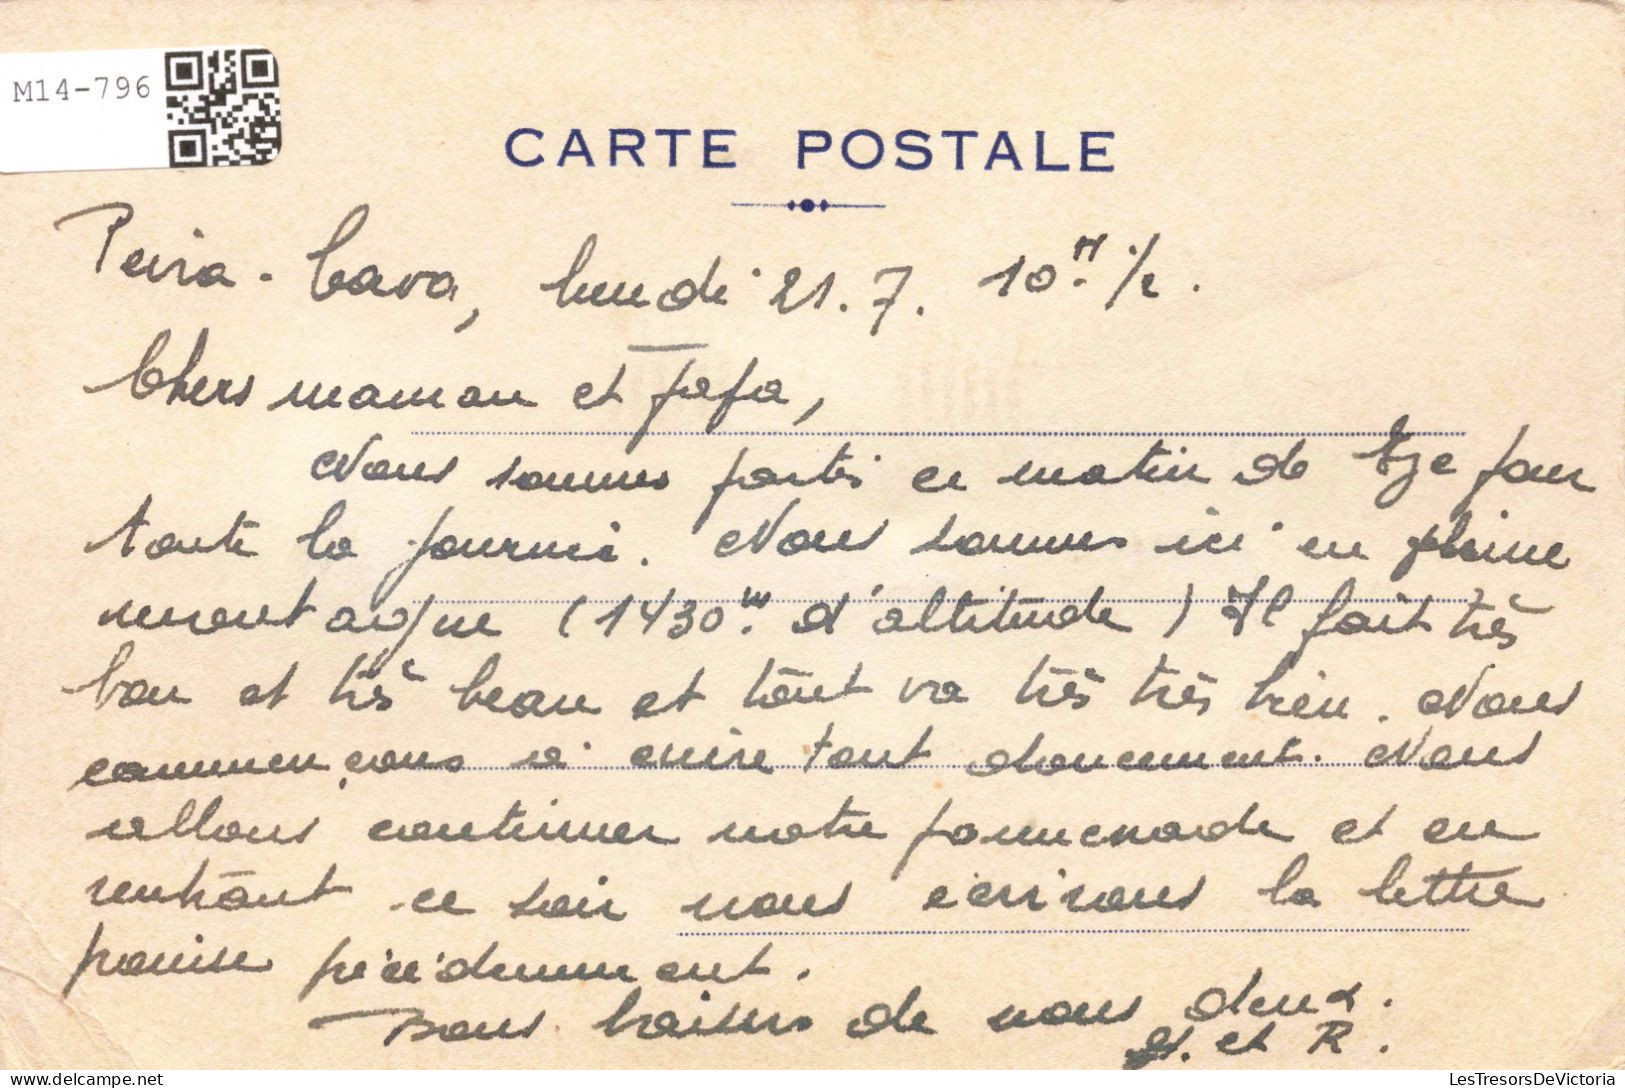 M14-796
CARTE POSTALE
Peira-Cava, lundi 21.7. 10H 1/2.
Chers maman et papa,
Nous sommes partis ce matin de Eze pour
toute la journée. Nous sommes ici en pleine
montagne (1430m. d'altitude) Il fait très
bon et très beau et tout va très très bien. Nous
commençons à cuire tout doucement. Nous
allons continuer notre promenade et en
rentrant ce soir nous écrirons la lettre
promise précédemment.
Bons baisers de nous deux.
et R.
LesTresorsDeVictoria